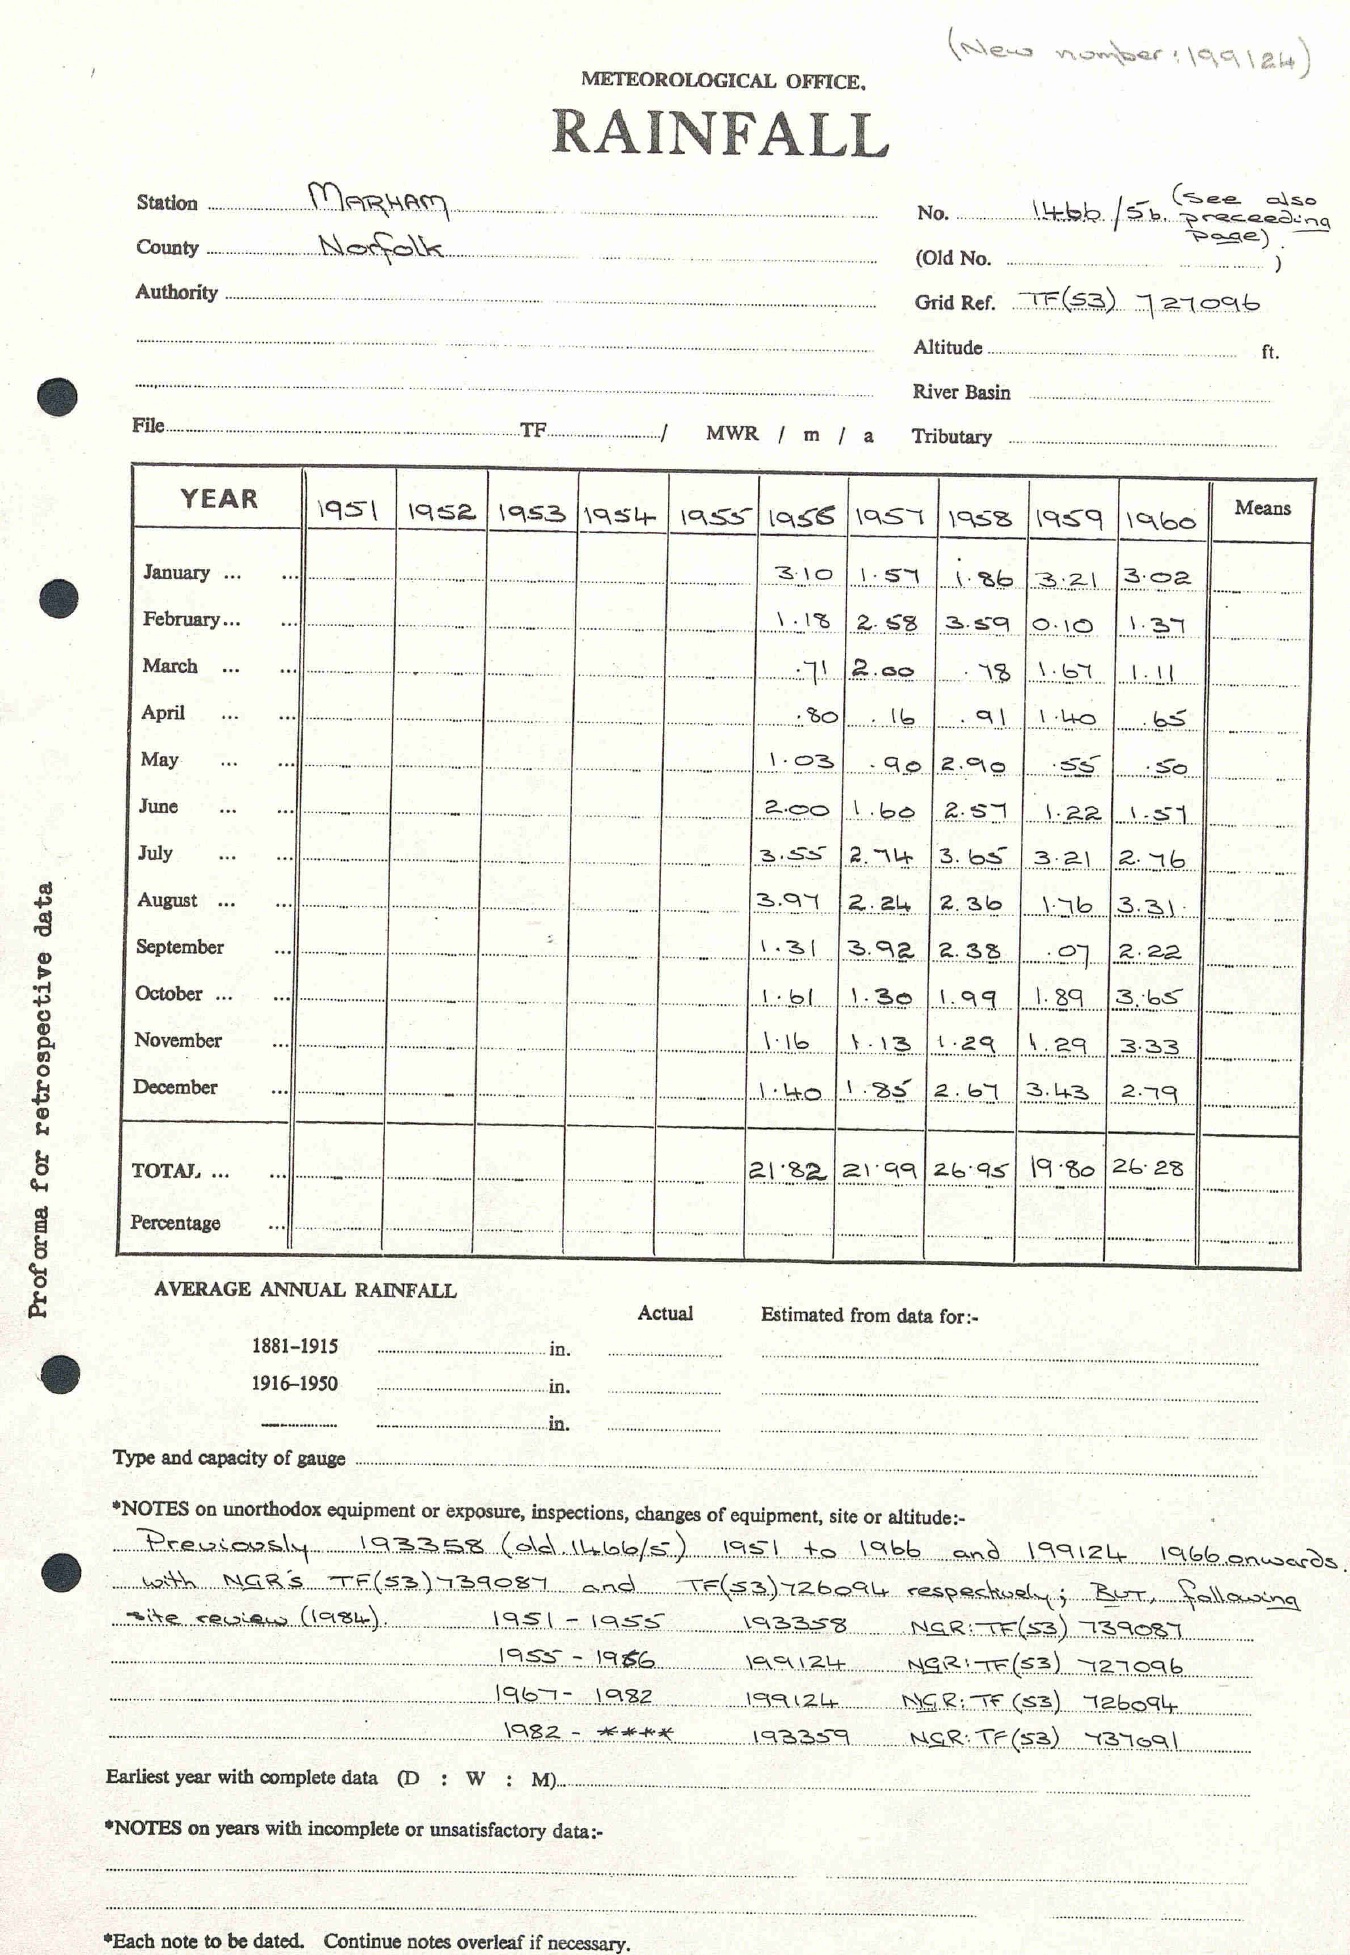 (New number: 199124)
METEOROLOGICAL OFFICE.
RAINFALL
Station MARHAM No. 1466/5b. (see also preceeding page).
County Norfolk (Old No. )
Authority Grid Ref. TF(53) 727096
Altitude ft.
River Basin
File TF / MWR / m / a Tributary
YEAR 1951 1952 1953 1954 1955 1956 1957 1958 1959 1960 Means
January ... ... 3.10 1.57 1.86 3.21 3.02
February... ... 1.18 2.58 3.59 0.10 1.37
March ... ... .71 2.00 .78 1.67 1.11
April ... ... .80 .16 .91 1.40 .65
May ... ... 1.03 .90 2.90 .55 .50
June ... ... 2.00 1.60 2.57 1.22 1.57
July ... ... 3.55 2.74 3.65 3.21 2.76
August ... ... 3.97 2.24 2.36 1.76 3.31
September ... 1.31 3.92 2.38 .07 2.22
October ... ... 1.61 1.30 1.99 1.89 3.65
November ... 1.16 1.13 1.29 1.29 3.33
December ... 1.40 1.85 2.67 3.43 2.79
TOTAL ... ... 21.82 21.99 26.95 19.80 26.28
Percentage ...
Proforma for retrospective data
AVERAGE ANNUAL RAINFALL
Actual Estimated from data for:-
1881–1915 in.
1916–1950 in.
in.
Type and capacity of gauge
*NOTES on unorthodox equipment or exposure, inspections, changes of equipment, site or altitude:-
Previously 193358 (old 1466/5) 1951 to 1966 and 199124 1966 onwards.
with NGR's TF(53)739087 and TF(53)726094 respectively; BUT, following
site review (1984). 1951 - 1955 193358 NGR: TF(53) 739087
1955 - 1966 199124 NGR: TF(53) 727096
1967 - 1982 199124 NGR: TF(53) 726094
1982 - **** 193359 NGR: TF(53) 737091
Earliest year with complete data (D : W : M)
*NOTES on years with incomplete or unsatisfactory data:-
*Each note to be dated. Continue notes overleaf if necessary.